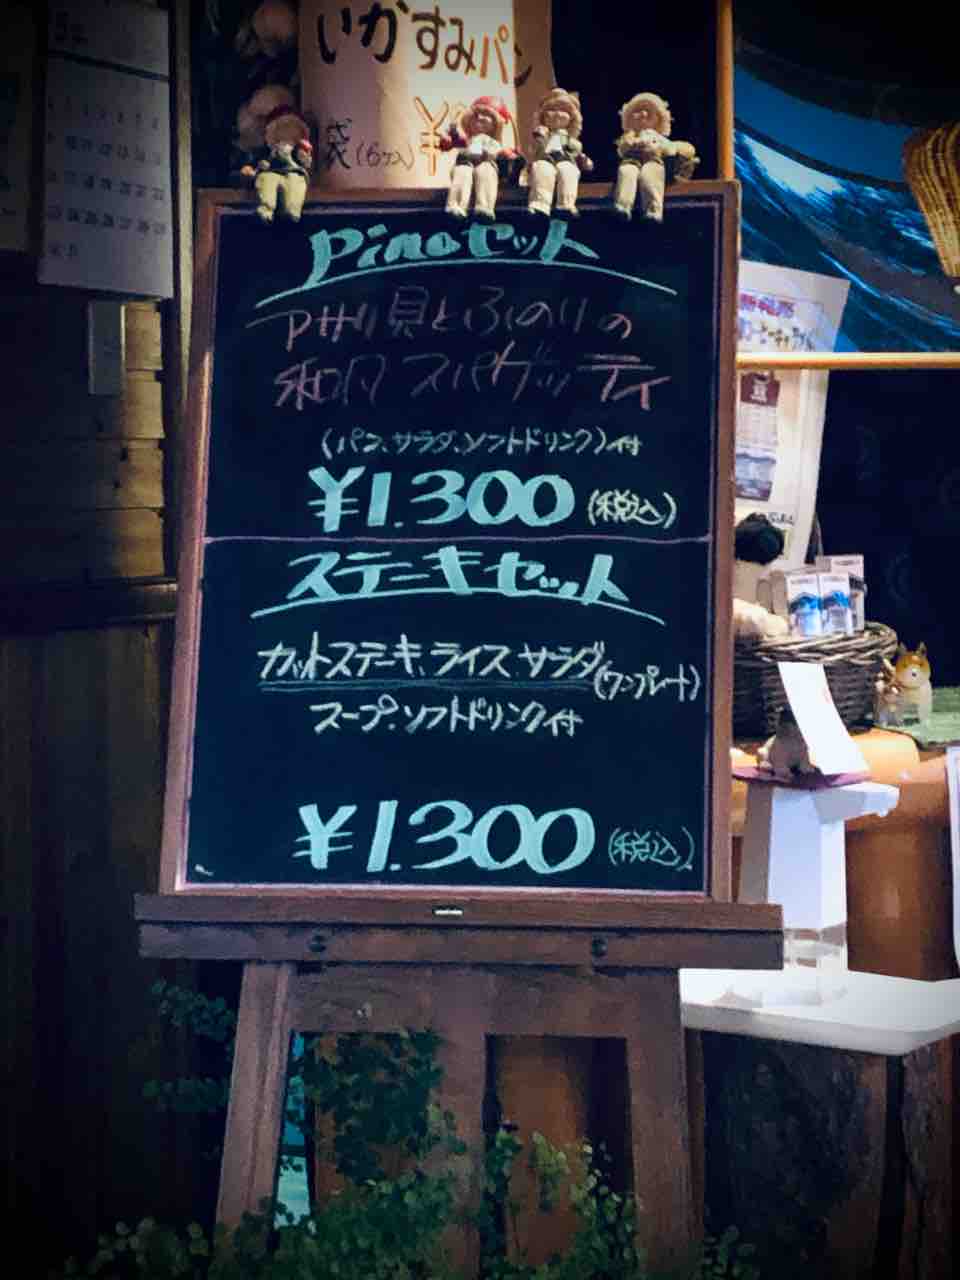 いかすみパン
袋(6ケ入)¥
Pinoセット
アサリ貝とふのりの
和風スパゲッティ
(パン、サラダ、ソフトドリンク)付
¥1.300(税込)
ステーキセット
カットステーキ、ライス、サラダ(ワンプレート)
スープ、ソフトドリンク付
¥1.300(税込)